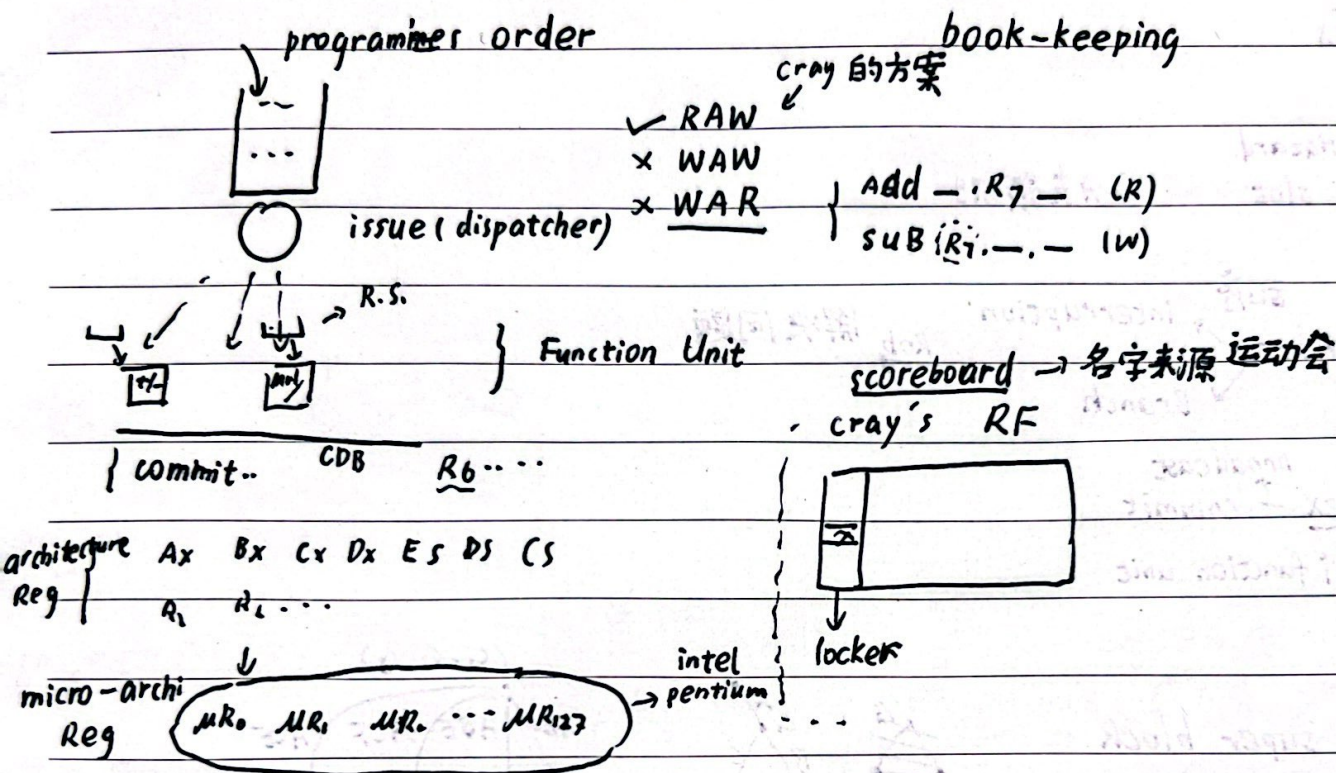 programmes order
book-keeping
cray 的方案
✓ RAW
× WAW
× WAR
Add —.R7 — (R)
SUB R7.—.— (W)
issue (dispatcher)
R.S.
+/-
Function Unit
scoreboard → 名字来源 运动会
cray's RF
commit..
CDB
R6....
architecture Reg
Ax Bx Cx Dx Es DS CS
...
locker
micro-archi Reg
μR0 μR1 ... μR127
intel pentium
...